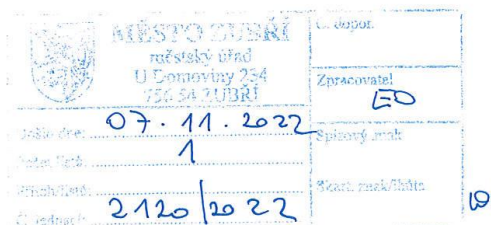 MĚSTO ZUBŘÍ
městský úřad
U Domoviny 234
756 54 ZUBŘÍ
Č. dopor.
Zpracovatel
Došlo dne: 07.11.2022
Počet listů: 1
Spisový znak
Příloh/listů:
Skart. znak/lhůta
Č. jednací: 2120/2022